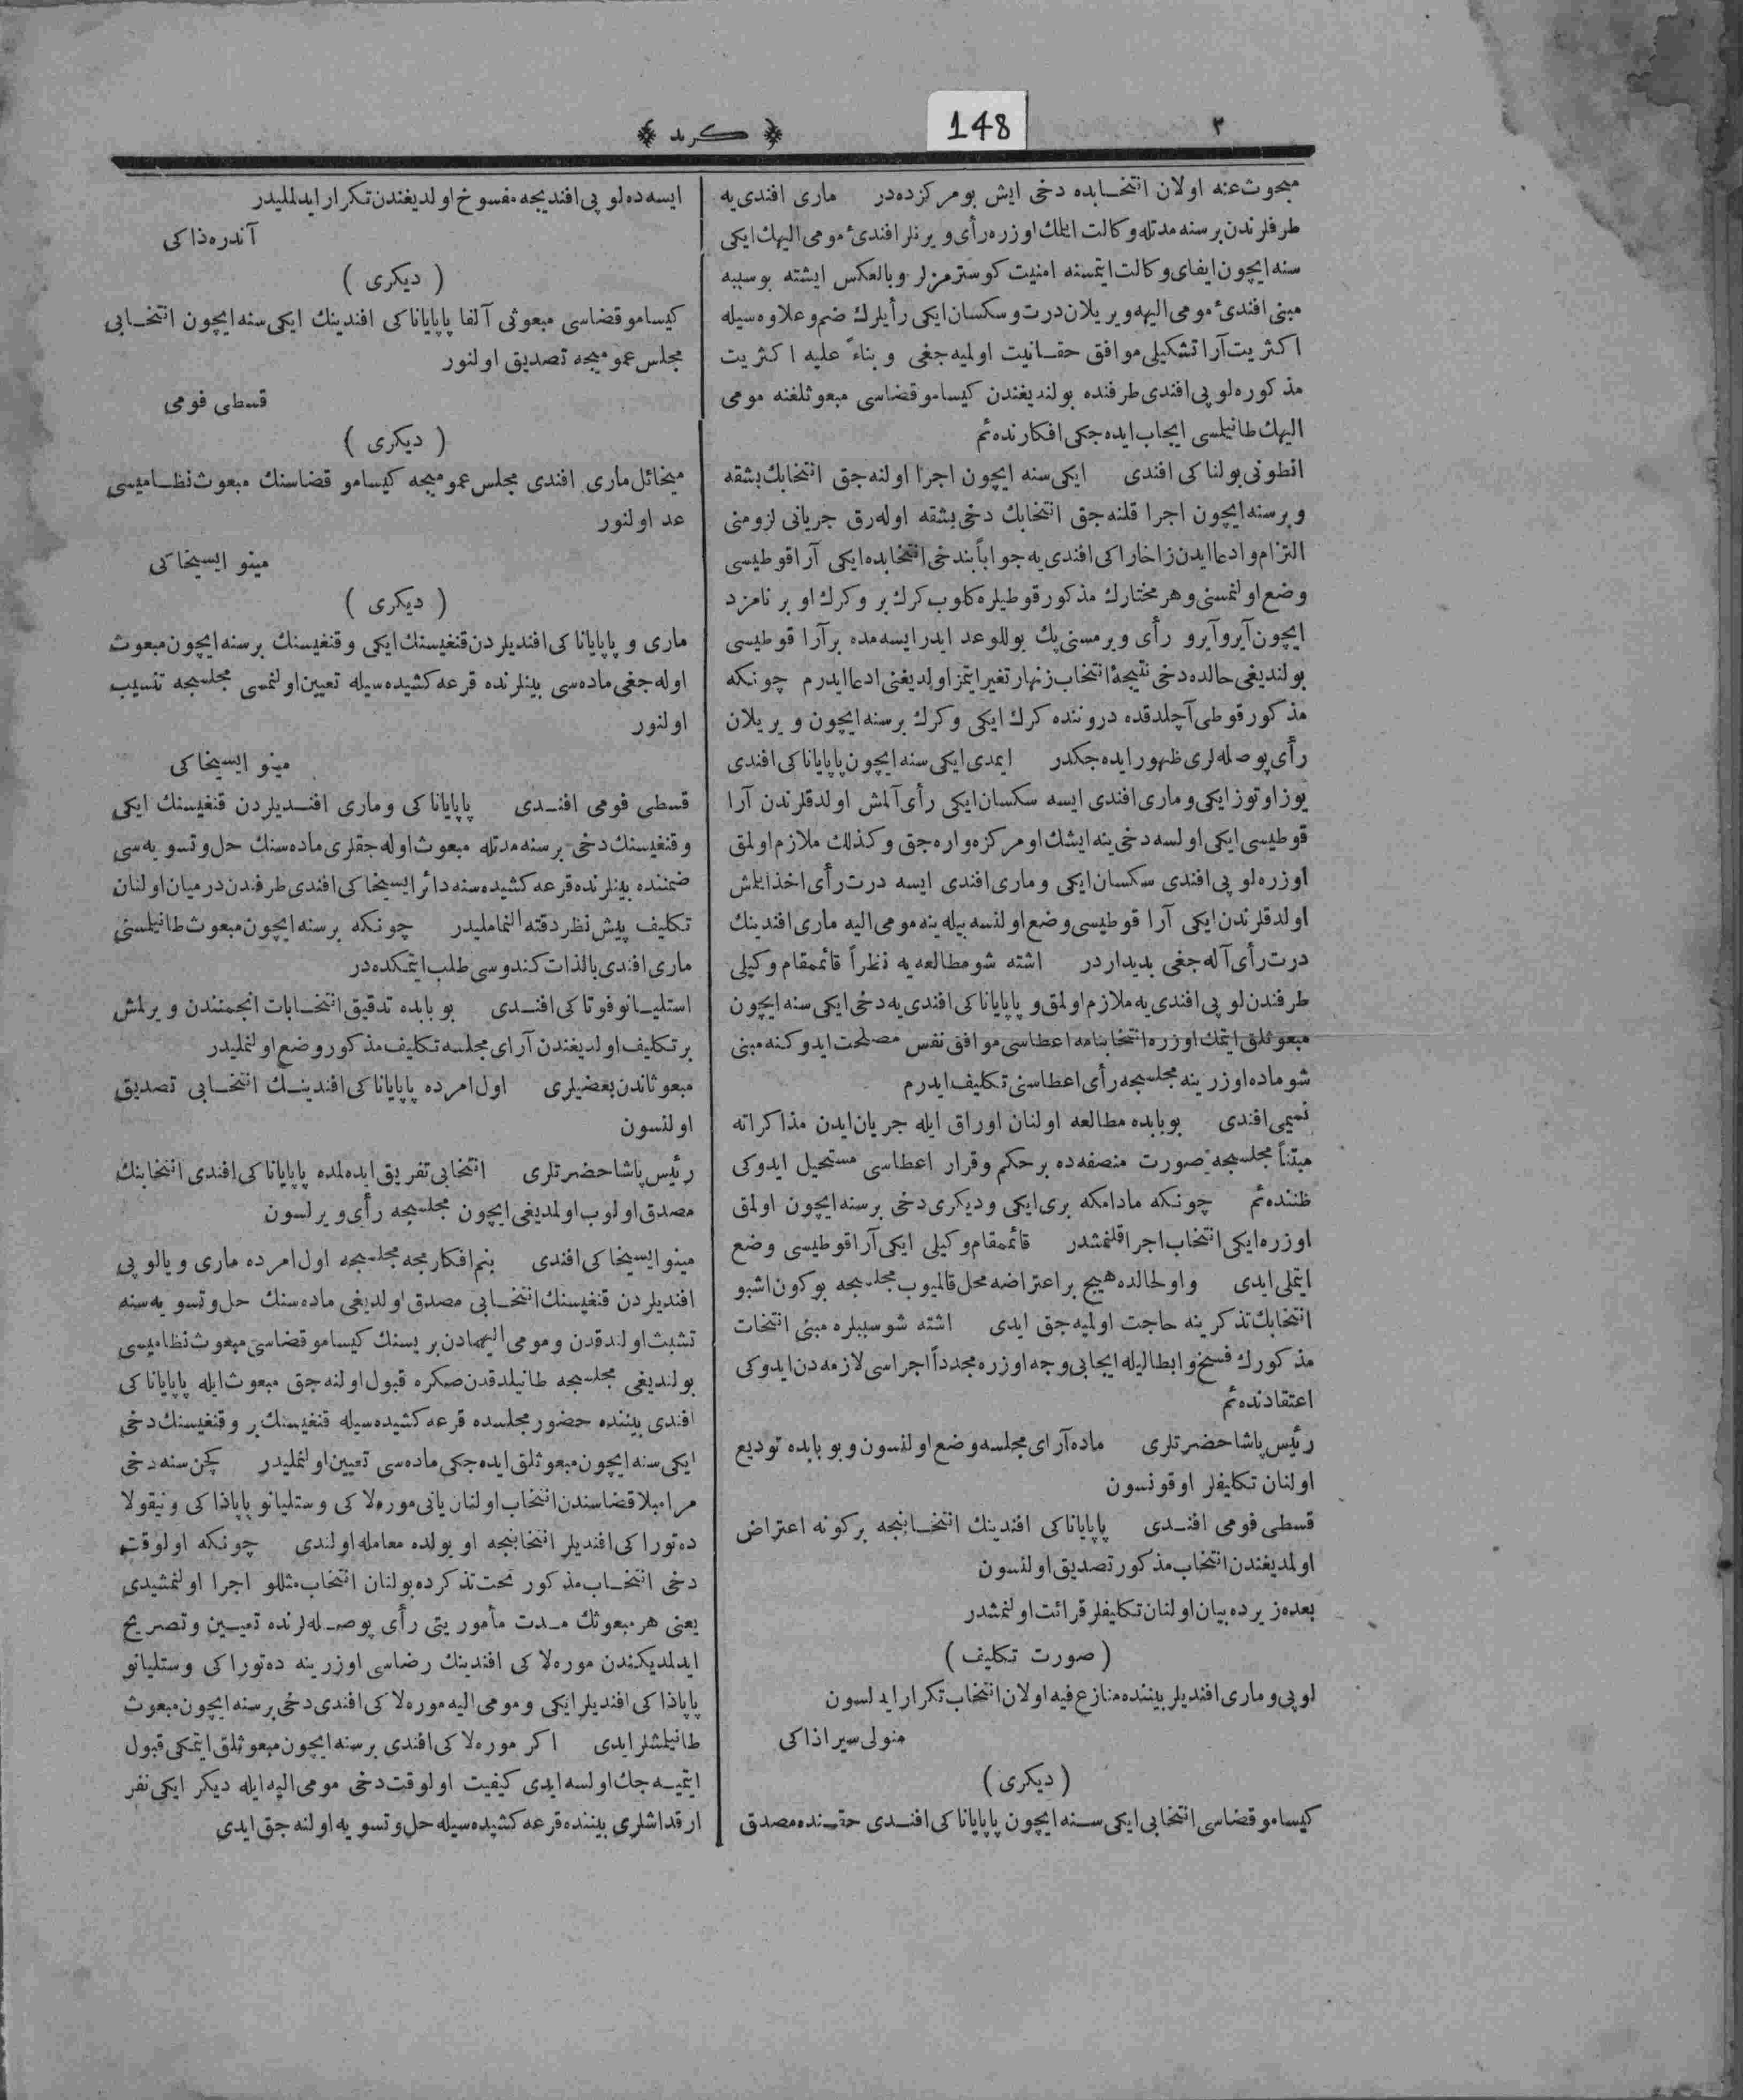 ٣
148
﴿ كريد ﴾
مبحوث عنه اولان انتخابده دخى ايش بو مركزده در ماری افندی يه
طرفلرندن بر سنه مدتله وكالت ايلمك اوزره رأی ويرنلر افندئ مومى اليهك ايكى
سنه ايچون ايفای وكالت ايتمسنه امنيت كوسترمزلر وبالعكس ايشته بو سببه
مبنى افندئ مومى اليهه ويريلان درت وسكسان ايكى رأيلرك ضم وعلاوه سيله
اكثريت آرا تشكيلى موافق حقانيت اوليه جغى وبناءً عليه اكثريت
مذكوره لوپى افندی طرفنده بولنديغندن كيسامو قضاسى مبعوثلغنه مومى
اليهك طانيلمسى ايجاب ايده جكى افكارنده ئم
انطونى بولناكى افندی ايكى سنه ايچون اجرا اولنه جق انتخابك بشقه
وبر سنه ايچون اجرا قلنه جق انتخابك دخى بشقه اوله رق جريانى لزومنى
التزام وادعا ايدن زاخاراكى افندی يه جواباً بندخى انتخابده ايكى آرا قوطيسى
وضع اولنمسنى وهر مختارك مذكور قوطيلره كلوب كرك بر وكرك او بر نامزد
ايچون آيرو آيرو رأی ويرمسنى پك يوللو عد ايدر ايسه مده بر آرا قوطيسى
بولنديغى حالده دخى نتيجۀ انتخاب زنهار تغير ايتمز اولديغنى ادعا ايدرم چونكه
مذكور قوطى آچلدقده دروننده كرك ايكى وكرك بر سنه ايچون ويريلان
رأی پوصله لری ظهور ايده جكدر ايمدی ايكى سنه ايچون پاپاياناكى افندی
يوز اوتوز ايكى وماری افندی ايسه سكسان ايكى رأی آلمش اولدقلرندن آرا
قوطيسى ايكى اولسه دخى ينه ايشك او مركزه واره جق وكذلك ملازم اولمق
اوزره لوپى افندی سكسان ايكى وماری افندی ايسه درت رأی اخذ ايلمش
اولدقلرندن ايكى آرا قوطيسى وضع اولنسه بيله ينه مومى اليه ماری افندينك
درت رأی آله جغى بديداردر اشته شو مطالعه يه نظراً قائممقام وكيلى
طرفندن لوپى افندی يه ملازم اولمق و پاپاياناكى افندی يه دخى ايكى سنه ايچون
مبعوثلق ايتمك اوزره انتخابنامه اعطاسى موافق نفس مصلحت ايدوكنه مبنى
شو ماده اوزرينه مجلسجه رأی اعطاسنى تكليف ايدرم
نعيمى افندی بو بابده مطالعه اولنان اوراق ايله جريان ايدن مذاكراته
مبتنياً مجلسجه صورت منصفه ده بر حكم وقرار اعطاسى مستحيل ايدوكى
ظننده ئم چونكه مادامكه بری ايكى وديكری دخى بر سنه ايچون اولمق
اوزره ايكى انتخاب اجرا قلنمشدر قائممقام وكيلى ايكى آرا قوطيسى وضع
ايتملى ايدی واولحالده هيچ بر اعتراضه محل قالميوب مجلسجه بوكون اشبو
انتخابك تذكرينه حاجت اولميه جق ايدی اشته شو سببلره مبنى انتخابات
مذكورك فسخ وابطاليله ايجابى وجه اوزره مجدداً اجراسى لازمه دن ايدوكى
اعتقادنده ئم
رئيس پاشا حضرتلری ماده آرای مجلسه وضع اولنسون وبو بابده توديع
اولنان تكليفلر اوقونسون
قسطى فومى افندی پاپاياناكى افندينك انتخابنجه بركونه اعتراض
اولمديغندن انتخاب مذكور تصديق اولنسون
بعده زيرده بيان اولنان تكليفلر قرائت اولنمشدر
( صورت تكليف )
لوپى وماری افنديلر بيننده منازع فيه اولان انتخاب تكرار ايدلسون
منولى سيراذاكى
( ديكری )
كيسامو قضاسى انتخابى ايكى سنه ايچون پاپاياناكى افندی حقنده مصدق
ايسه ده لوپى افنديجه مفسوخ اولديغندن تكرار ايدلمليدر
آندره ذاكى
( ديكری )
كيسامو قضاسى مبعوثى آلفا پاپاياناكى افندينك ايكى سنه ايچون انتخابى
مجلس عموميجه تصديق اولنور
قسطى فومى
( ديكری )
ميخائل ماری افندی مجلس عموميجه كيسامو قضاسنك مبعوث نظاميسى
عد اولنور
مينو ايسيخاكى
( ديكری )
ماری و پاپاياناكى افنديلردن قنغيسنك ايكى وقنغيسنك بر سنه ايچون مبعوث
اوله جغى ماده سى بينلرنده قرعه كشيده سيله تعيين اولنمسى مجلسجه تنسيب
اولنور
مينو ايسيخاكى
قسطى فومى افندی پاپاياناكى وماری افنديلردن قنغيسنك ايكى
وقنغيسنك دخى بر سنه مدتله مبعوث اوله جقلری ماده سنك حل وتسويه سى
ضمننده بينلرنده قرعه كشيده سنه دائر ايسيخاكى افندی طرفندن درميان اولنان
تكليف پيش نظر دقته النماملیدر چونكه بر سنه ايچون مبعوث طانيلمسنى
ماری افندی بالذات كندوسى طلب ايتمكده در
استليانو فوتاكى افندی بو بابده تدقيق انتخابات انجمنندن ويرلمش
بر تكليف اولديغندن آرای مجلسه تكليف مذكور وضع اولنمليدر
مبعوثاندن بعضيلری اول امرده پاپاياناكى افندينك انتخابى تصديق
اولنسون
رئيس پاشا حضرتلری انتخابى تفريق ايده لمده پاپاياناكى افندی انتخابنك
مصدق اولوب اولمديغى ايچون مجلسجه رأی ويرلسون
مينو ايسيخاكى افندی بنم افكارمجه مجلسجه اول امرده ماری ويا لوپى
افنديلردن قنغيسنك انتخابى مصدق اولديغى ماده سنك حل وتسويه سنه
تشبث اولندقدن ومومى اليهمادن بريسنك كيسامو قضاسى مبعوث نظاميسى
بولنديغى مجلسجه طانيلدقدن صكره قبول اولنه جق مبعوث ايله پاپاياناكى
افندی بيننده حضور مجلسده قرعه كشيده سيله قنغيسنك بر وقنغيسنك دخى
ايكى سنه ايچون مبعوثلق ايده جكى ماده سى تعيين اولنمليدر كچن سنه دخى
مرامبلا قضاسندن انتخاب اولنان يانى موره لاكى وستليانو پاپاذاكى ونيقولا
ده توراكى افنديلر انتخابنجه او يولده معامله اولندی چونكه اولوقت
دخى انتخاب مذكور تحت تذكرده بولنان انتخاب مثللو اجرا اولنمشيدی
يعنى هر مبعوثك مدت مأموريتى رأی پوصله لرنده تعيين وتصريح
ايدلمديكندن موره لاكى افندينك رضاسى اوزرينه ده توراكى وستليانو
پاپاذاكى افنديلر ايكى ومومى اليه موره لاكى افندی دخى بر سنه ايچون مبعوث
طانيلمشلر ايدی اكر موره لاكى افندی بر سنه ايچون مبعوثلق ايتمكى قبول
ايتميه جك اولسه ايدی كيفيت اولوقت دخى مومى اليه ايله ديكر ايكى نفر
ارقداشلری بيننده قرعه كشيده سيله حل وتسويه اولنه جق ايدی